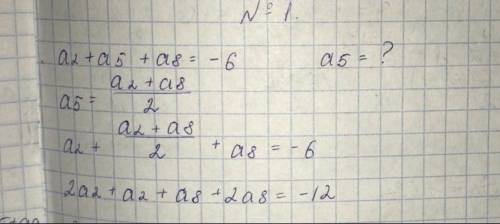 № 1.
a2 + a5 + a8 = -6 a5 = ?
a5 = (a2 + a8)/2
a2 + (a2 + a8)/2 + a8 = -6
2a2 + a2 + a8 + 2a8 = -12